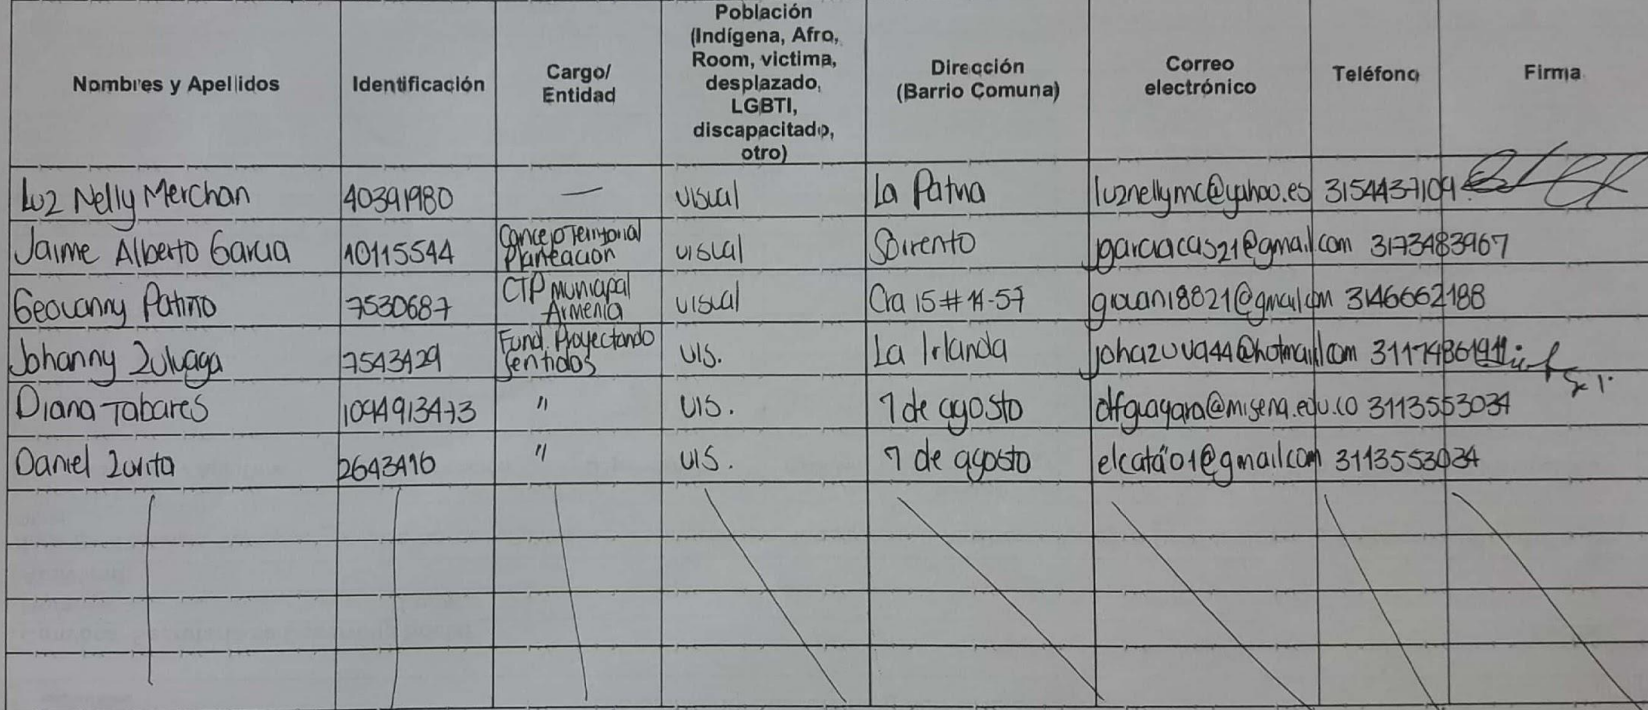 Nombres y Apellidos Identificación Cargo/ Entidad Población (Indígena, Afro, Room, victima, desplazado, LGBTI, discapacitado, otro) Dirección (Barrio Comuna) Correo electrónico Teléfono Firma
Luz Nelly Merchan 40391980 — visual La Patria luznellymc@yahoo.es 3154437109
Jaime Alberto Garcia 10115544 Concejo Territorial Planeacion visual Sorrento jgarciacas21@gmail.com 3173483967
Geovanny Patiño 7530687 CTP municipal Armenia visual Cra 15 # 11-57 giovani8821@gmail.com 3146662188
Johanny Zuluaga 7543429 Fund. Proyectando Sentidos vis. La Irlanda johazuva44@hotmail.com
Diana Tabares 1094913473 " vis. 7 de agosto @misena.edu.co 3113553034
Daniel Zurita 2643416 " vis. 7 de agosto @gmail.com 3113553034